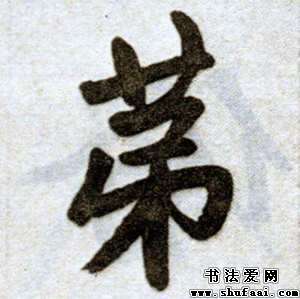 第
书法爱网
www.shufaai.com